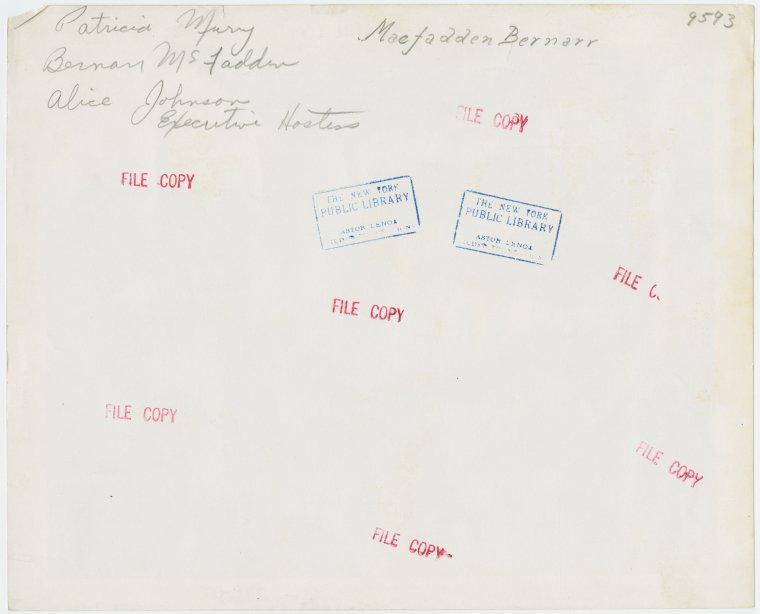 9593
Patricia Mury
Macfadden Bernarr
Bernarr McFadden
Alice Johnson
Executive Hostess
FILE COPY
FILE COPY
THE NEW YORK
PUBLIC LIBRARY
ASTOR LENOX
THE NEW YORK
PUBLIC LIBRARY
ASTOR LENOX
FILE C
FILE COPY
FILE COPY
FILE COPY
FILE COPY